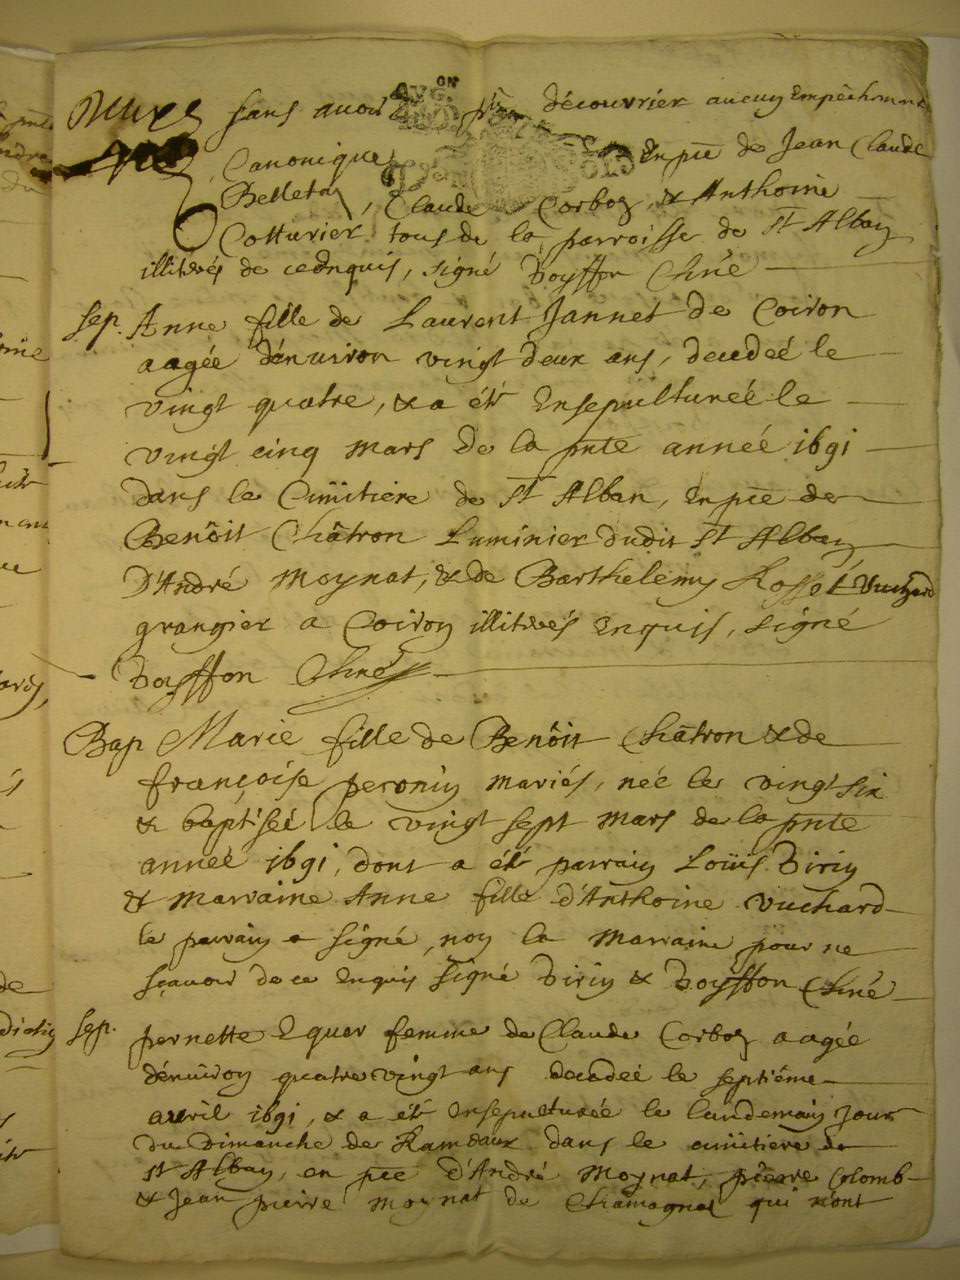 sans avoir pû découvrier aucun Empêchement
Canonique En pñce de Jean Claude
Belleta, Claude Corboz, & Anthoine
Cotturier tous de la parroisse de St Alban
illitérés de ce Enquis, signé Doyffon Curé
sep. Anne fille de Laurent Jannet de Coiron
aagée dénuiron vingt deux ans, decedeé le
vingt quatre, & a été Ensepultureé le
vingt cinq mars de la pnte année 1691
dans le Cimitiére de St Alban, En pñce de
Benoit Châtron Luminier dudit St Alban
D'André Moynat, & de Barthelemy Rosset Vuchard
grangier a Coiron illitérés Enquis, signé
Doyffon Curé
Bap Marie fille de Benoit Châtron & de
françoise peronin mariés, née le vingt six
& baptiseé le vingt sept mars de la pnte
anneé 1691, dont a été parrain Loüis Dirin
& marraine Anne fille d'Anthoine Vuchard
le parrain a signé, non la marraine pour ne
sçauoir de ce Enquis signé Dirin & Doyffon Curé
Sep. pernette Equer femme de Claude Corboz aagée
dénuiron quatre vingt ans decedeé le septiéme
auril 1691, & a été Ensepulturée le lendemain jour
du Dimanche de Rameaux dans le cimitiere de
St Alban, en pñce d'André Moynat, pierre Colomb
& Jean pierre Moynat de Chamagnat qui n'ont